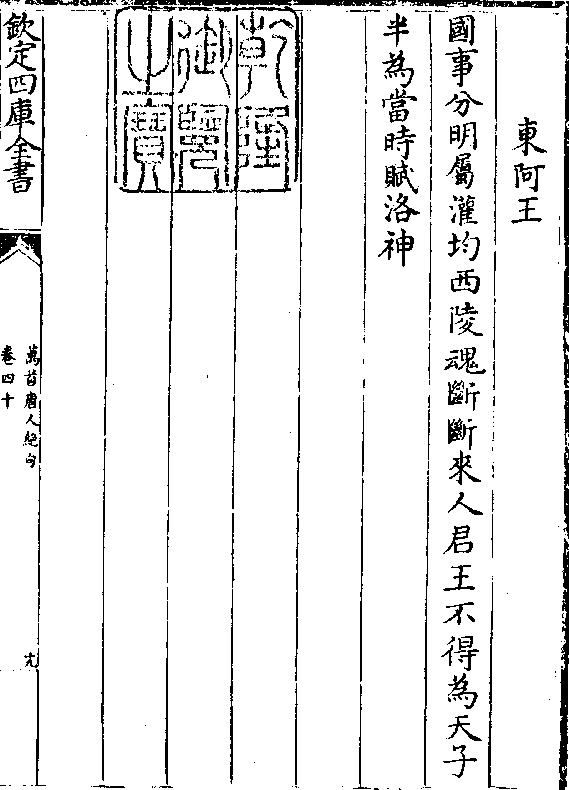 東阿王
國事分明屬灌均西陵魂斷斷來人君王不得為天子
半為當時賦洛神
乾隆
御覽
之寶
欽定四庫全書
萬首唐人絶句
卷四十